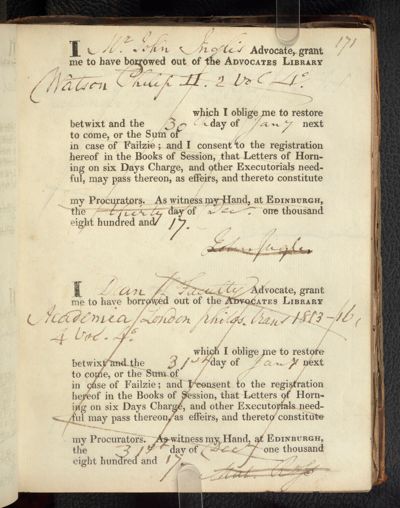 171
I Mr John Inglis Advocate, grant
me to have borrowed out of the ADVOCATES LIBRARY
Watson Philip II. 2 Vol 4o.
which I oblige me to restore
betwixt and the 30th day of Jany next
to come, or the Sum of
in case of Failzie; and I consent to the registration
hereof in the Books of Session, that Letters of Horn-
ing on six Days Charge, and other Executorials need-
ful, may pass thereon, as effeirs, and thereto constitute
my Procurators. As witness my Hand, at EDINBURGH,
the thirty day of Dec. one thousand
eight hundred and 17.
John Inglis
I Dan Advocate, grant
me to have borrowed out of the ADVOCATES LIBRARY
Academia London philos. trans 1813-16,
4 Vol. 4o.
which I oblige me to restore
betwixt and the 31st day of Jany next
to come, or the Sum of
in case of Failzie; and I consent to the registration
hereof in the Books of Session, that Letters of Horn-
ing on six Days Charge, and other Executorials need-
ful may pass thereon, as effeirs, and thereto constitute
my Procurators. As witness my Hand, at EDINBURGH,
the 31st day of Decr one thousand
eight hundred and 17.